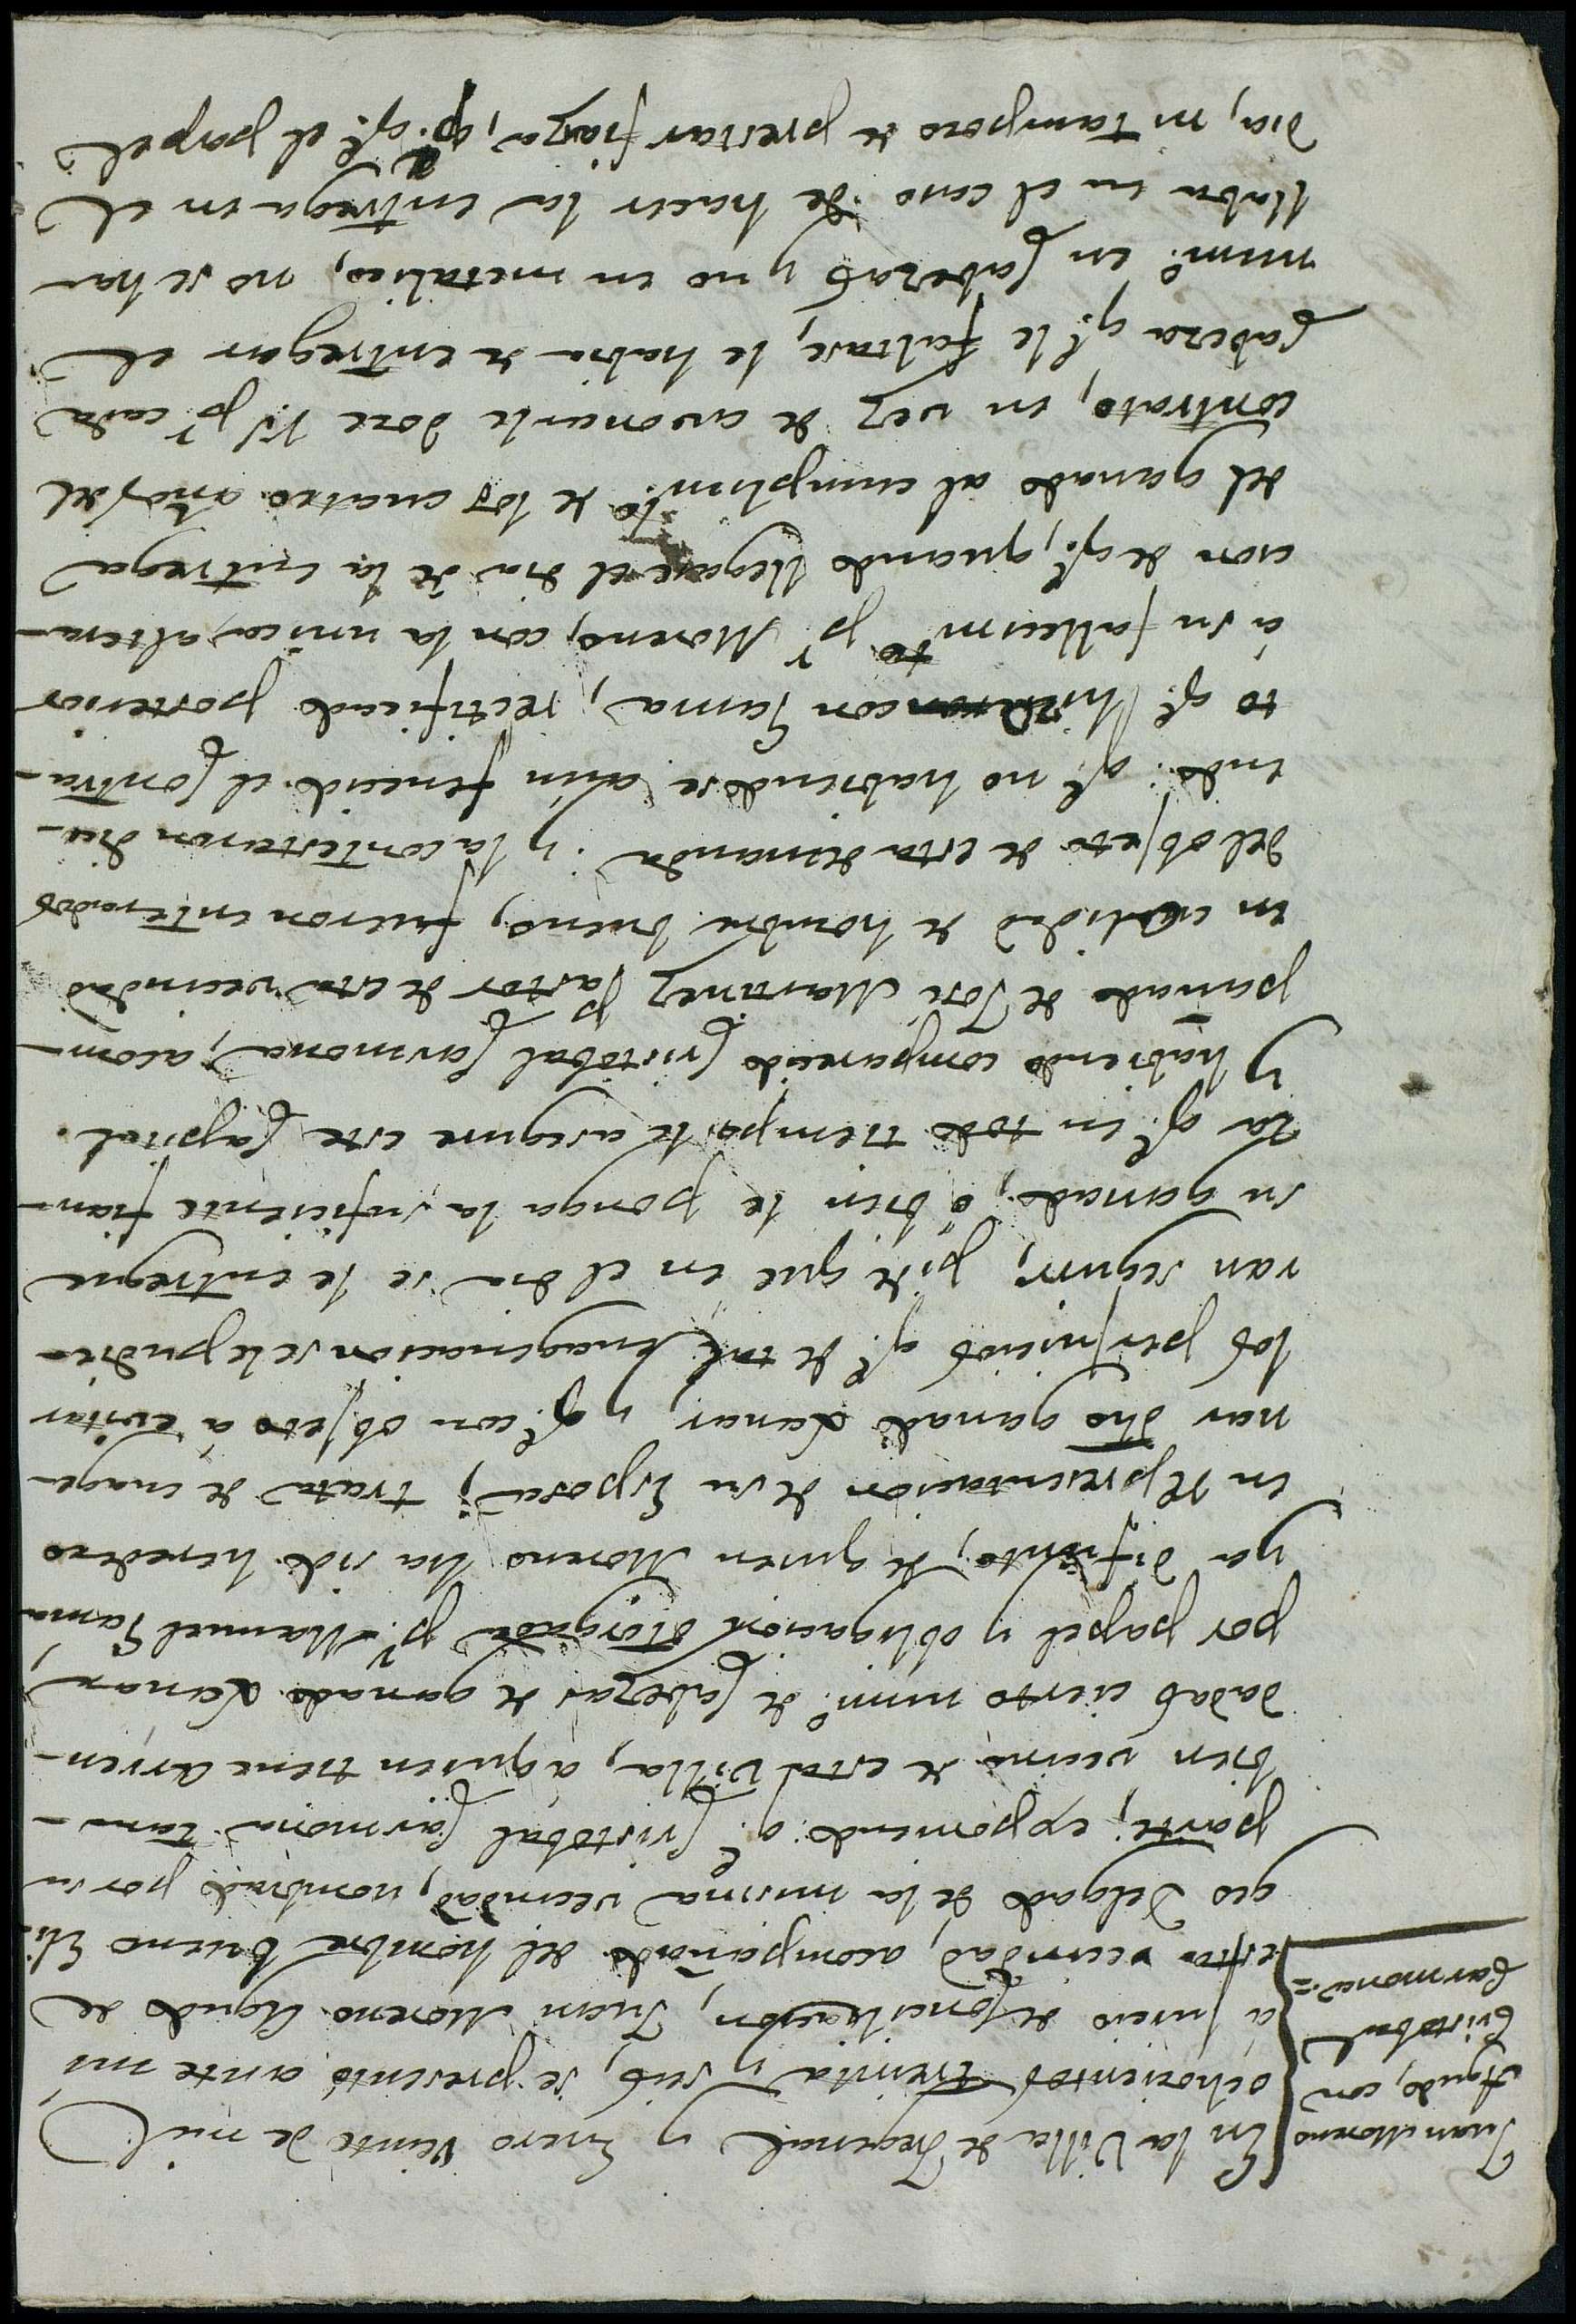 Juan Moreno
Agudo, con
Cristobal
Carmona.=
En la Villa de Fregenal y Enero veinte de mil
ochocientos treinta y seis, se presentó ante mi
á juicio de Conciliacion, Juan Moreno Agudo de
esta vecindad, acompañado del hombre bueno Eli-
geo Delgado de la misma vecindad, nombrado por su
parte; exponiendo q.e Cristobal Carmona tam-
bien vecino de esta Villa, á quien tiene arren-
dadas cierto num.o de Cabezas de ganado Lanar
por papel y obligacion otorgada p.r Manuel Gama,
ya difunto, de quien Moreno ha sido heredero
en representacion de su Esposa; trata de enage-
nar dho ganado Lanar, y q.e con objeto á evitar
los perjuicios q.e de tal enagenacion se le pudie-
ran seguir, pide que en el dia se le entregue
su ganado, ó bien le ponga la suficiente fian-
za q.e en todo tiempo le asegure este Capital.
Y habiendo comparecido Cristobal Carmona, acom-
pañado de José Marquez Pastor de esta vecindad
en calidad de hombre bueno, fueron enterados
del objeto de esta demanda: y la contestaron dici-
endo: q.e no habiendose aún fenecido el Contra-
to q.e hizo con Gama, rectificado posterior
á su fallecim.to p.r Moreno, con la unica altera-
cion de q.e, quando llegase el dia de la entrega
del ganado al cumplim.to de los cuatro años del
contrato, en vez de avonarle doce rs. p.r cada
Cabeza q.e le faltase, le habia de entregar el
num.o en Cabezas y no en metalico, no se ha-
llaba en el caso de hacer la entrega en el
dia, ni tampoco de prestar fianza, p.q.e el papel